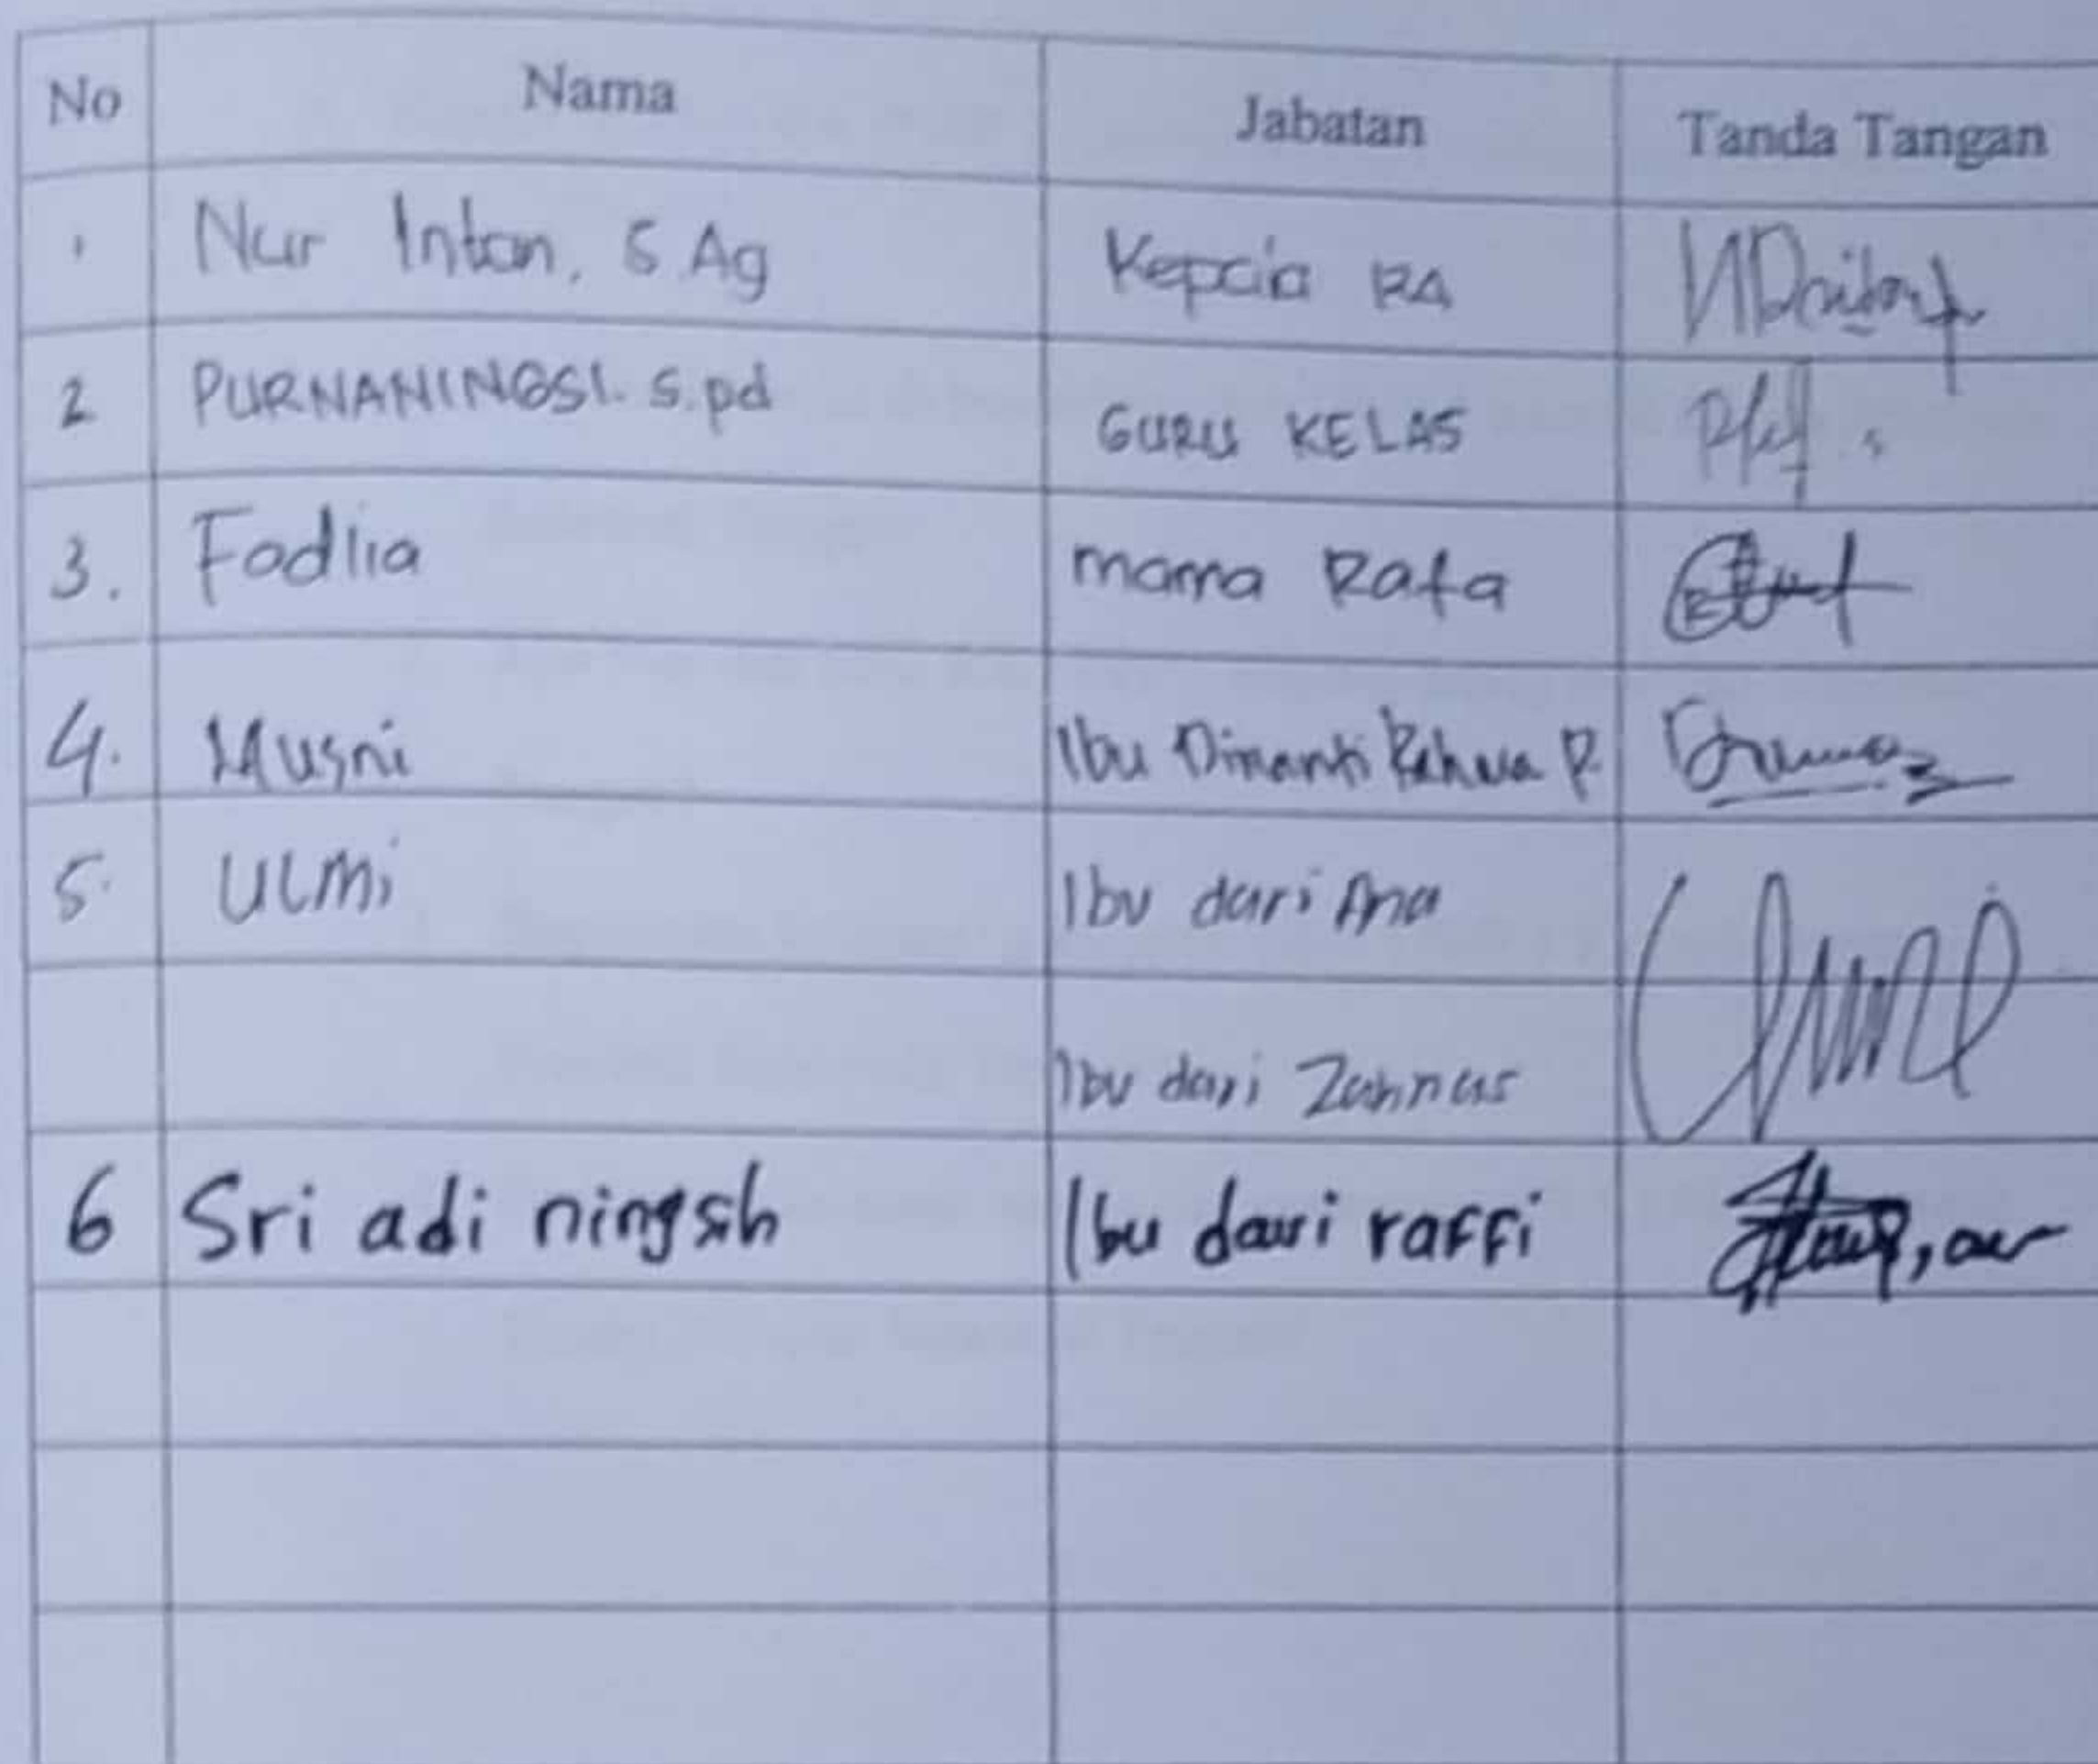 No Nama Jabatan Tanda Tangan
1 Nur Intan, S.Ag Kepala RA
2 PURNANINGSI. S.pd GURU KELAS
3. Fadlia mama Rafa
4. Musni Ibu Dinanti P.
5. ULMi Ibu dari Ana
Ibu dari
6 Sri adi ningsih Ibu dari raffi